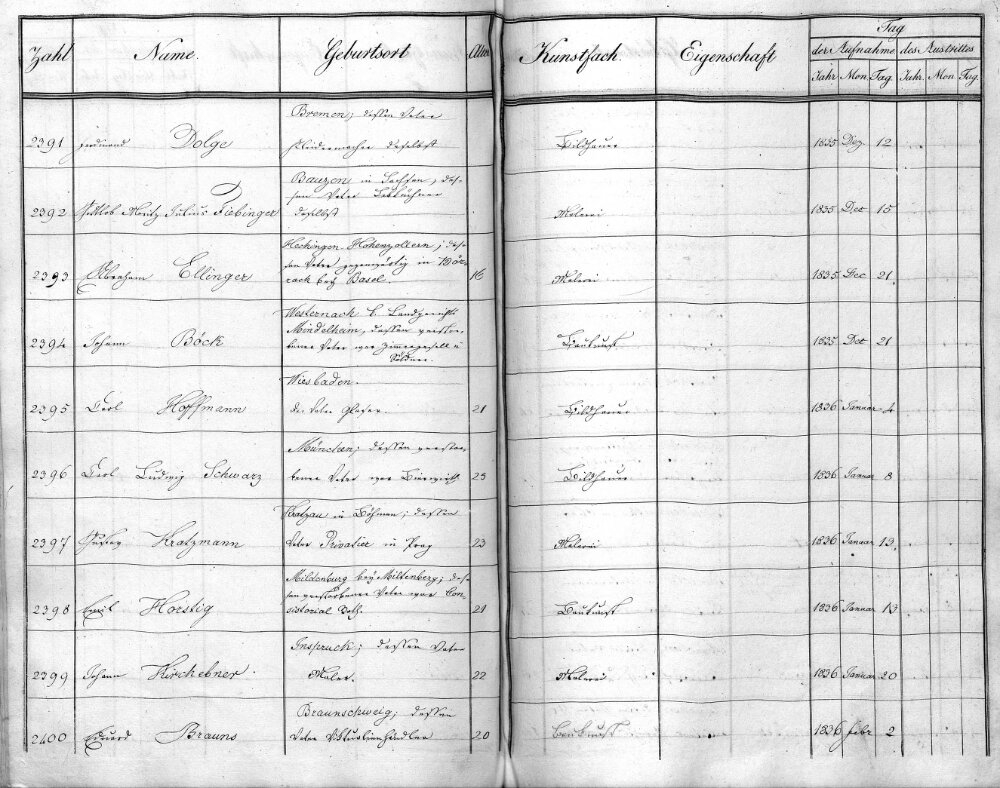 Zahl Name. Geburtsort Alter Kunstfach. Eigenschaft Tag
der Aufnahme des Austrittes
Jahr Mon. Tag. Jahr. Mon. Tag.
Bremen; dessen Vater
2391 Ferdinand Dolge Kleidermacher daselbst Bildhauer 1835 Dez. 12
Bauzen in Sachsen, des-
sen Vater
2392 Gottlob Moritz Julius Fiebinger daselbst Malerei 1835 Dec 15
Hechingen-Hohenzollern; des-
sen Vater gegenwärtig in Lör-
2393 Abraham Ellinger rach bey Basel. 16 Malerei 1835 Dec 21
Westernach k. Landgerichts
Mindelheim, dessen verstor-
2394 Johann Böck bener Vater war Zimmergesell u Baukunst 1835 Dec 21
Söldner.
Wiesbaden.
2395 Carl Hoffmann der Vater Glaser 21 Bildhauer 1836 Januar 4
München; dessen verstor-
2396 Carl Ludwig Schwarz bener Vater war 23 Bildhauer 1836 Januar 8
Kratzau in Böhmen; dessen
2397 Gustav Kratzmann Vater Privatier in Prag 23 Malerei 1836 Januar 12.
Mildenburg bey Miltenberg; des-
sen verstorbener Vater war Con-
2398 Emil Horstig sistorial Rath. 21 Baukunst 1836 Januar 13
Inspruck; dessen Vater
2399 Johann Kirchebner. Maler. 22 Malerei 1836 Januar 20
Braunschweig; dessen
2400 Eduard Brauns Vater Viktualienhändler 20 Baukunst 1836 Febr 2